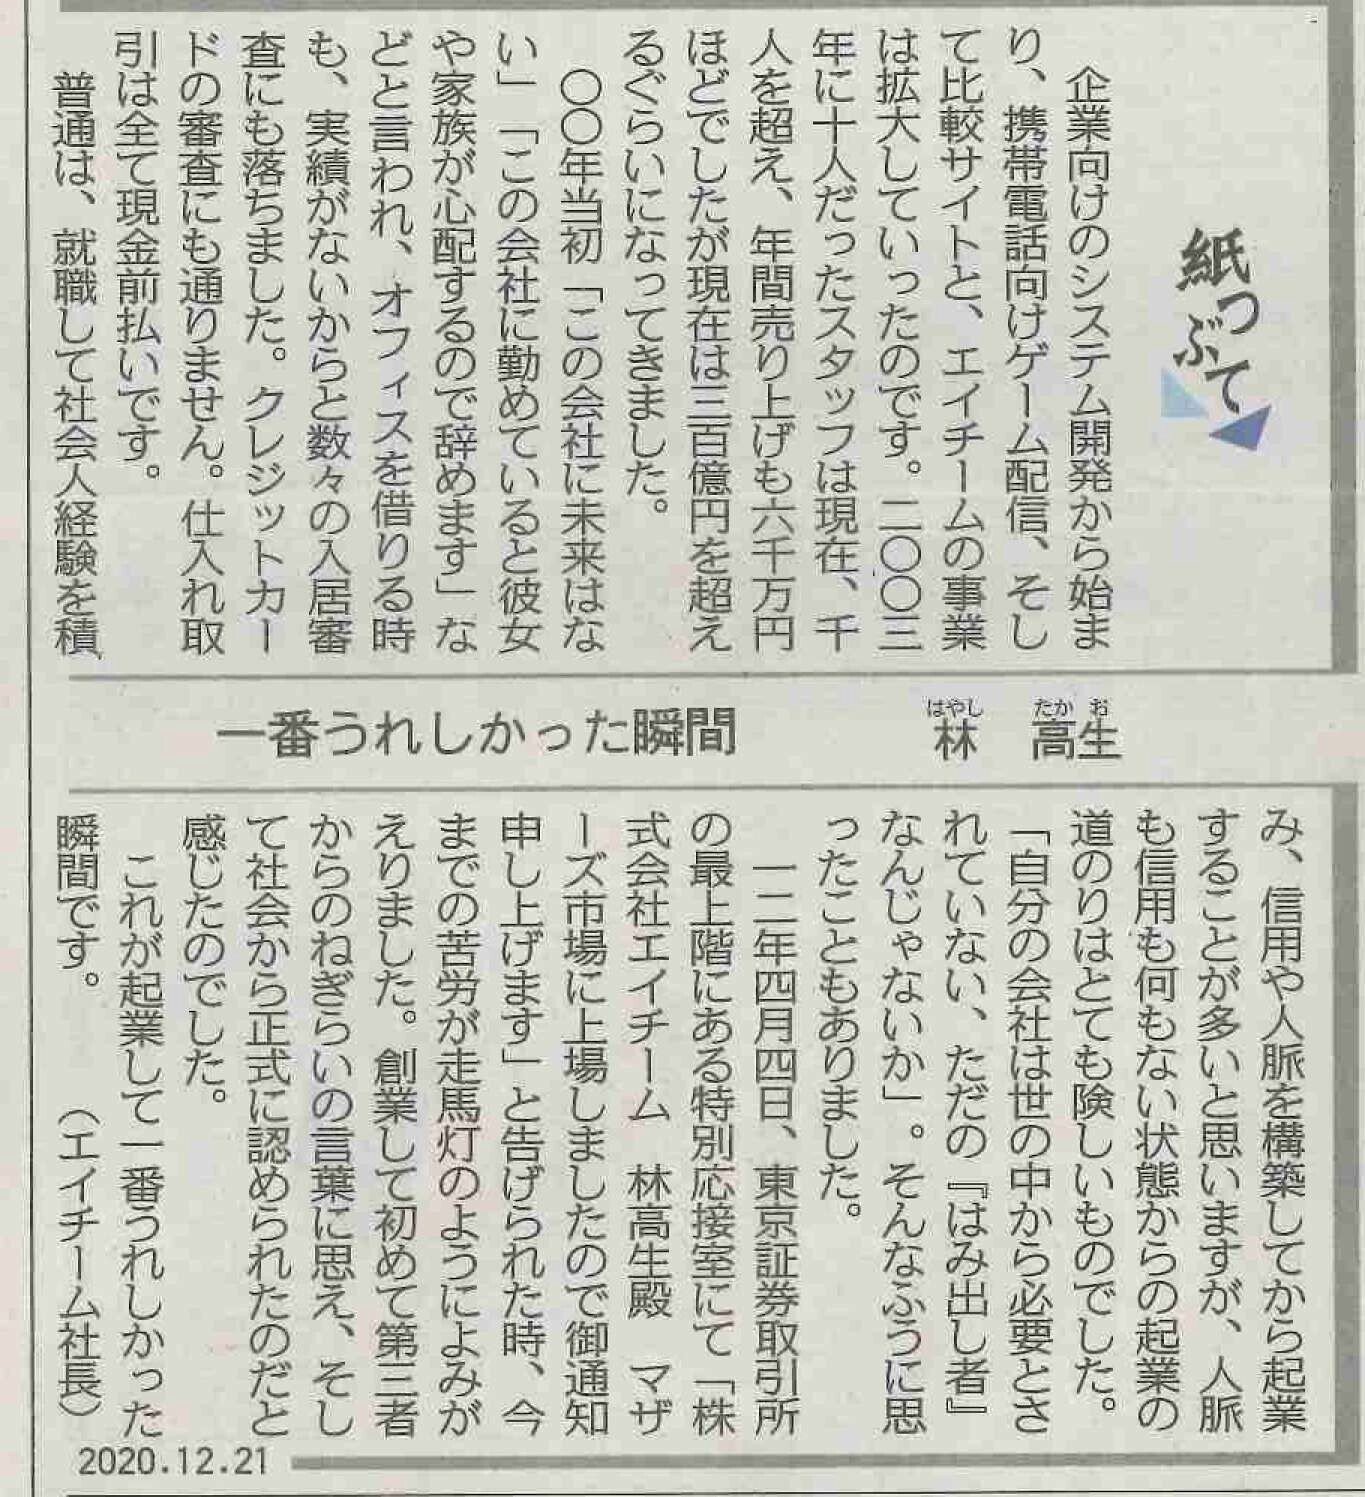 紙つぶて
企業向けのシステム開発から始ま
り、携帯電話向けゲーム配信、そし
て比較サイトと、エイチームの事業
は拡大していったのです。二〇〇三
年に十人だったスタッフは現在、千
人を超え、年間売り上げも六千万円
ほどでしたが現在は三百億円を超え
るぐらいになってきました。
〇〇年当初「この会社に未来はな
い」「この会社に勤めていると彼女
や家族が心配するので辞めます」な
どと言われ、オフィスを借りる時
も、実績がないからと数々の入居審
査にも落ちました。クレジットカー
ドの審査にも通りません。仕入れ取
引は全て現金前払いです。
普通は、就職して社会人経験を積
一番うれしかった瞬間
林 高生
はやし たか お
み、信用や人脈を構築してから起業
することが多いと思いますが、人脈
も信用も何もない状態からの起業の
道のりはとても険しいものでした。
「自分の会社は世の中から必要とさ
れていない、ただの『はみ出し者』
なんじゃないか」。そんなふうに思
ったこともありました。
一二年四月四日、東京証券取引所
の最上階にある特別応接室にて「株
式会社エイチーム 林高生殿 マザ
ーズ市場に上場しましたので御通知
申し上げます」と告げられた時、今
までの苦労が走馬灯のようによみが
えりました。創業して初めて第三者
からのねぎらいの言葉に思え、そし
て社会から正式に認められたのだと
感じたのでした。
これが起業して一番うれしかった
瞬間です。 （エイチーム社長）
2020.12.21